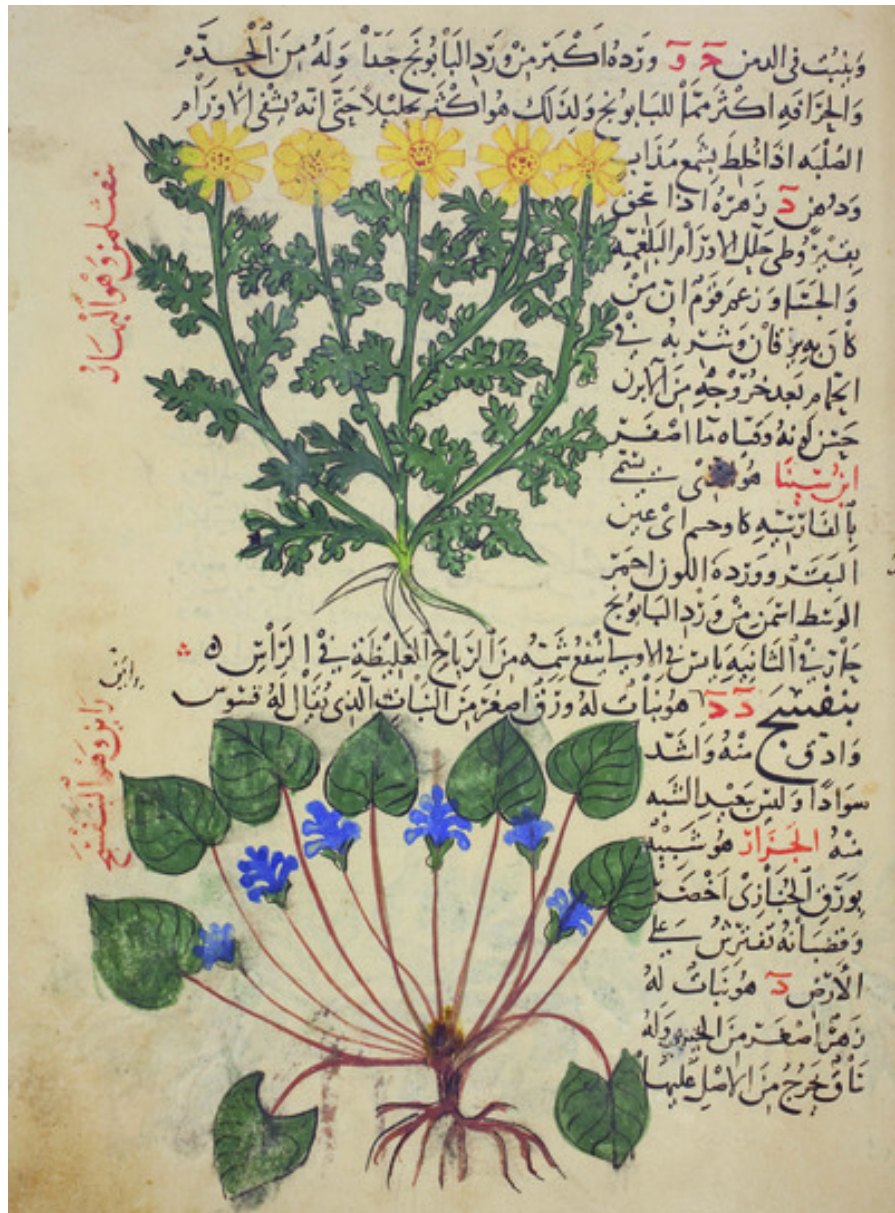 وينبت في الدمن ج و وزده اكبر من ورد البابونج جدا وله من الحده
والحرافه اكثر مما للبابونج ولذلك هو اكثر تحليلا حتى انه يشفى الاورام
الصلبه اذا خلط بشمع مذاب
ودهن د زهره اذا سحق
بقيروطى حلل الاورام البلغميه
والجسا وزعم قوم ان من
كان به يرقان وشربه في
الحمام بعد خروجه من الابزن
حسن لونه وقتاه ما اصفر
ابن سينا هو يسمى
بالفارسيه كاوجسم اى عين
البقر وورده اللون احمر
الوسط اسمن من ورد البابونج
حار في الثانيه يابس في الاولى ينفع شمه من الرياح الغليظة في الراس
بنفسج د د هو نبات له ورق اصغر من النبات الذى يقال له قسوس
وادق منه واشد
سوادا وليس بعيد الشبه
منه الجزار هو شبيه
بورق الخبازى اخضر
وقضبانه تفترش على
الارض د هو نبات له
زهر اصغر من الخيرى وله
ساق تخرج من الاصل عليها
بفثلمن وهو البهار
وهو البنفسج